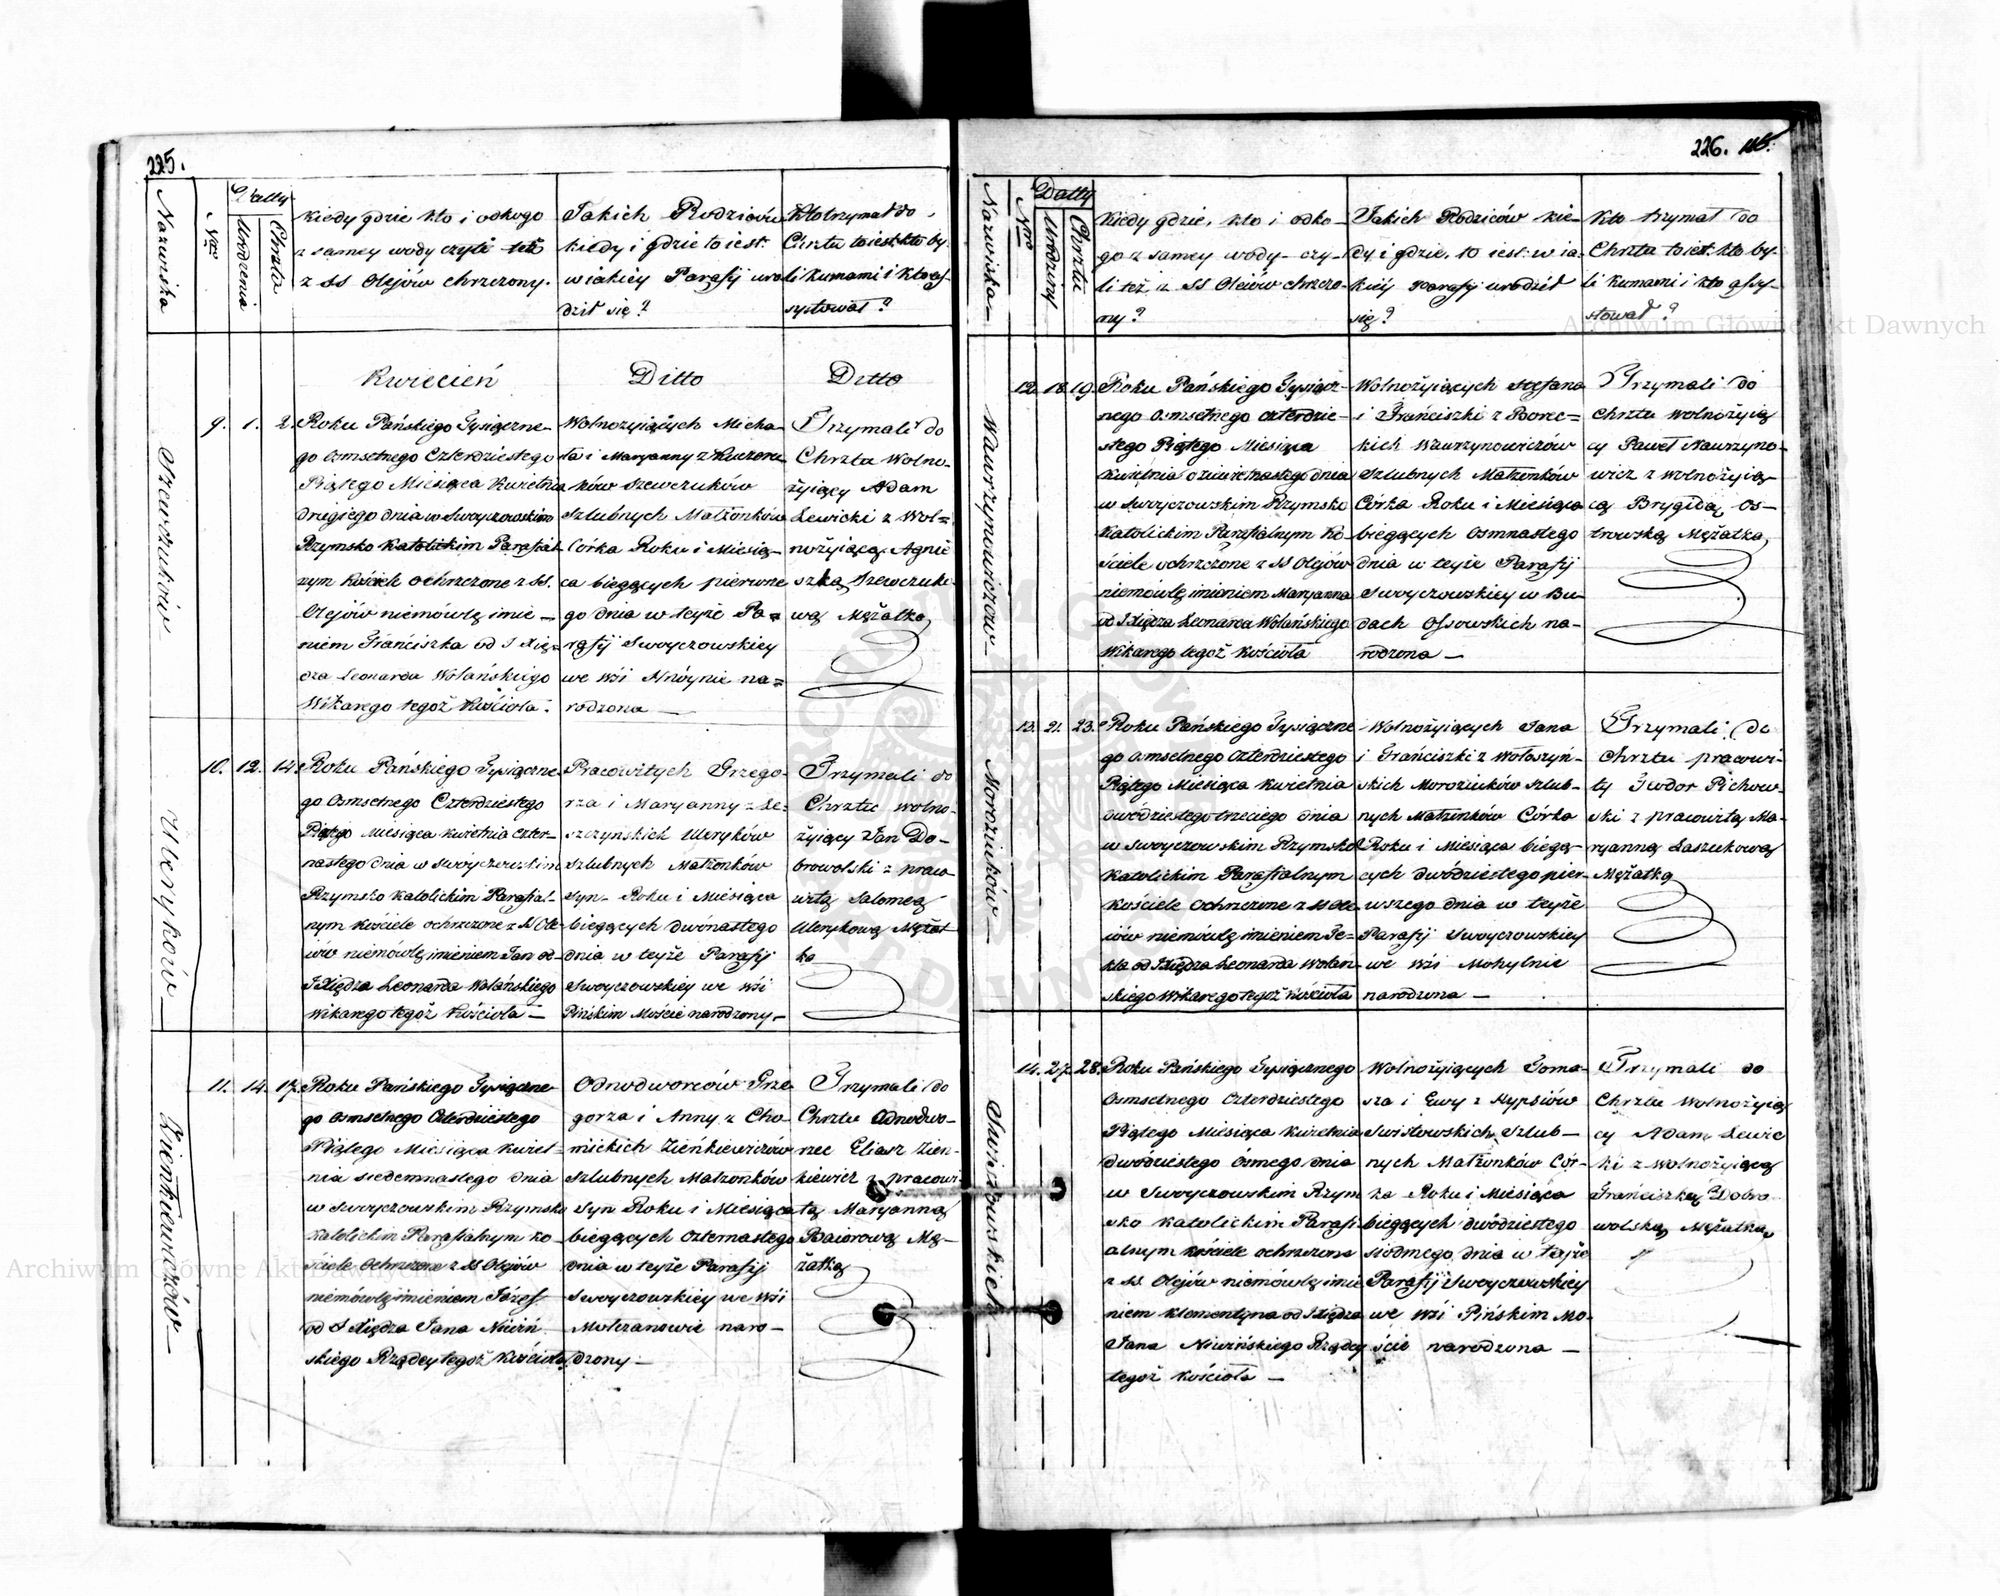 225.
Nazwiska
Nro
Datty
Urodzenia
Chrztu
Kiedy gdzie kto i od kogo
z samey wody czyli też
z SS Olejów chrzczony.
Jakich Rodziców
kiedy i gdzie to iest
w iakiey Parafij uro
dził się?
Kto trzymał do
Chrztu to iest kto by
li kumami i kto as
systował?
Kwiecień
Ditto
Ditto
Szewczuków
9. 1. 2.
Roku Pańskiego Tysiączne
go Osmsetnego Czterdziestego
Piątego Miesiąca Kwietnia
drugiego dnia w Swoyczowskim
Rzymsko Katolickim Parafial
nym Kościele ochrzczone z SS.
Olejów niemówlę imie
niem Franciszka od J Xię
dza Leonarda Wolańskiego
Wikarego tegoż Kościoła.
Wolnożyiących Micha
ła i Maryanny z
ków Szewczuków
Szlubnych Małżonków
Córka Roku i Miesią
ca bieżących pierwsze
go dnia w teyże Pa
rafij Swoyczowskiey
we Wsi na
rodzona —
Trzymali do
Chrztu Wolno
żyiący Adam
Lewicki z Wol
nożyiącą Agnie
szką Szewczuko
wą Mężatką
Uleryków —
10. 12. 14.
Roku Pańskiego Tysiączne
go Osmsetnego Czterdziestego
Piątego Miesiąca Kwietnia czter
nastego dnia w Swoyczowskim
Rzymsko Katolickim Parafial
nym Kościele ochrzczone z SS Ole
iów niemówlę imieniem Jan od
J Xiędza Leonarda Wolańskiego
Wikarego tegoż Kościoła —
Pracowitych Grzego
rza i Maryanny z Le
szczyńskich Uleryków
Szlubnych Małżonków
Syn Roku i Miesiąca
bieżących dwónastego
dnia w teyże Parafij
Swoyczowskiey we Wsi
Pińskim Moście narodzony —
Trzymali do
Chrztu wolno
żyiący Jan Do
browolski z praco
witą Salomeą
Ulerykową Mężat
ką
Zienkiewiczów —
11. 14. 17.
Roku Pańskiego Tysiączne
go Osmsetnego Czterdziestego
Piątego Miesiąca Kwiet
nia siedemnastego dnia
w Swoyczowskim Rzymsko
Katolickim Parafialnym Ko
ściele Ochrzczone z SS Olejów
niemówlę imieniem Józef
od J Xiędza Jana Niwiń
skiego Rządcy tegoż Kościoła
Odnodworców Grze
gorza i Anny z Cho
mickich Zieńkiewiczów
Szlubnych Małżonków
Syn Roku i Miesiąca
bieżących czternastego
dnia w teyże Parafij
Swoyczowskiey we Wsi
Molczanowie naro
dzony —
Trzymali do
Chrztu Odnodwo
rzec Eliasz Zien
kiewicz z pracowi
tą Maryanną
Baiorową Mę
żatką
226.
Nazwiska
Nro
Datty
Urodziny
Chrztu
Kiedy gdzie, kto i od ko
go z samey wody czy
li też z SS Oleiów chrzczo
ny?
Jakich Rodziców kie
dy i gdzie, to iest w ia
kiey Parafij urodził
się?
Kto trzymał do
Chrztu to iest kto by
li kumami i kto assy
stował?
Wawrzynowiczow —
12. 18. 19.
Roku Pańskiego Tysiącz
nego Osmsetnego Czterdzie
stego Piątego Miesiąca
Kwietnia dziewiętnastego dnia
w Swoyczowskim Rzymsko
Katolickim Parafialnym Ko
ściele ochrzczone z SS Olejów
niemówlę imieniem Maryanna
od J Xiędza Leonarda Wolańskiego
Wikarego tegoż Kościoła
Wolnożyiących Stefana
i Franciszki z Borec
kich Wawrzynowiczów
Szlubnych Małżonków
Córka Roku i Miesiąca
bieżących Osmnastego
dnia w teyże Parafij
Swoyczowskiey w Bu
dach Ossowskich na
rodzona —
Trzymali do
Chrztu wolnożyią
cy Paweł Wawrzyno
wicz z wolnożyią
cą Brygidą Os
trowską Mężatką
Moroziuków —
13. 21. 23.
Roku Pańskiego Tysiączne
go Osmsetnego Czterdziestego
Piątego Miesiąca Kwietnia
dwódziestego trzeciego dnia
w Swoyczowskim Rzymsko
Katolickim Parafialnym
Kościele Ochrzczone z SS Ole
iów niemówlę imieniem Te
kla od J Xiędza Leonarda Wolań
skiego Wikarego tegoż Kościoła
Wolnożyiących Jana
i Franciszki z Wołoszyń
skich Moroziuków Szlub
nych Małżonków Córka
Roku i Miesiąca bieżą
cych dwódziestego pier
wszego dnia w teyże
Parafij Swoyczowskiey
we Wsi Mohylnie
narodzona —
Trzymali do
Chrztu pracowi
ty Fwdor Pichow
ski z pracowitą Ma
ryanną Laszukową
Mężatką
Swistowskich —
14. 27. 28.
Roku Pańskiego Tysiącznego
Osmsetnego Czterdziestego
Piątego Miesiąca Kwietnia
dwódziestego Osmego dnia
w Swoyczowskim Rzym
sko Katolickim Parafi
alnym Kościele ochrzczone
z SS Olejów niemówlę imie
niem Klementyna od J Xiędza
Jana Niwińskiego Rządcy
tegoż Kościoła —
Wolnożyiących Toma
sza i Ewy z Hypsiów
Swistowskich Szlub
nych Małżonków Cór
ka Roku i Miesiąca
bieżących dwódziestego
siódmego dnia w teyże
Parafij Swoyczowskiey
we Wsi Pińskim Mo
ście narodzona —
Trzymali do
Chrztu Wolnożyią
cy Adam Lewic
ki z Wolnożyiącą
Franciszką Dobro
wolską Mężatką
Archiwum Główne Akt Dawnych
Archiwum Główne Akt Dawnych